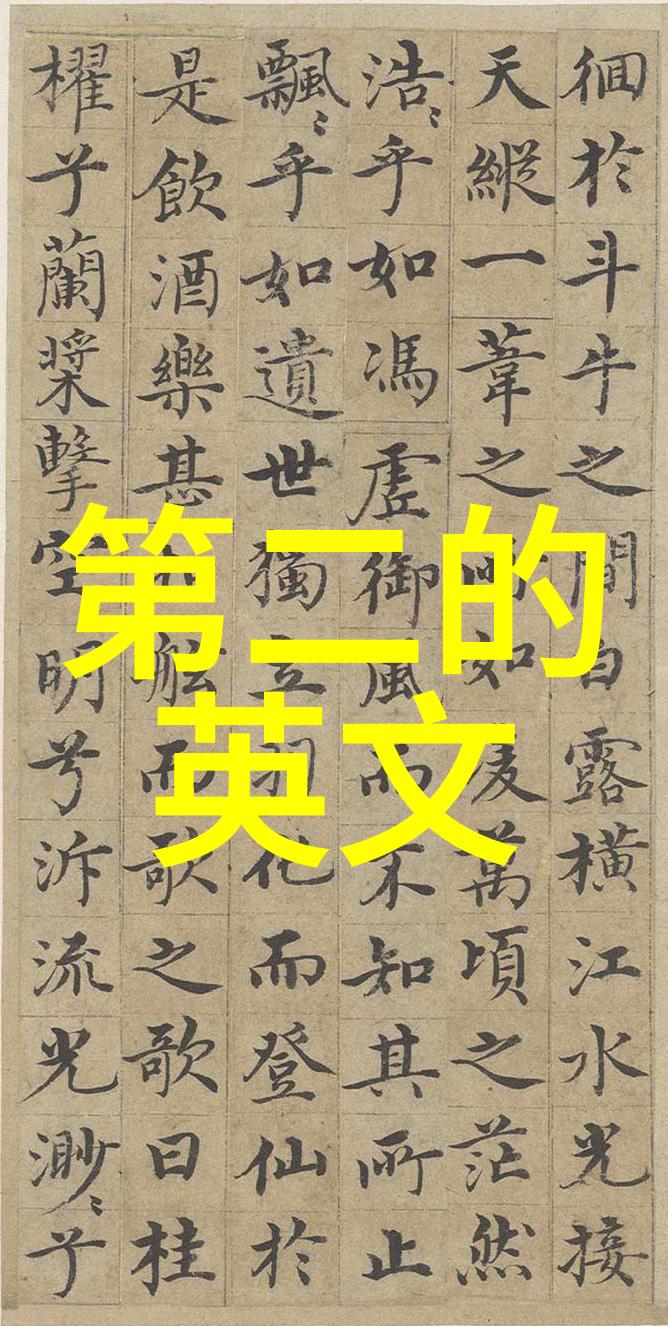 徊於斗牛之間白露橫江水光接
天縱一葦之所如凌萬頃之茫然
浩〻乎如馮虛御風而不知其所止
飄〻乎如遺世獨立羽化而登仙於
是飲酒樂甚扣舷而歌之歌曰桂
櫂兮蘭槳擊空明兮泝流光渺〻兮
第二的
英文